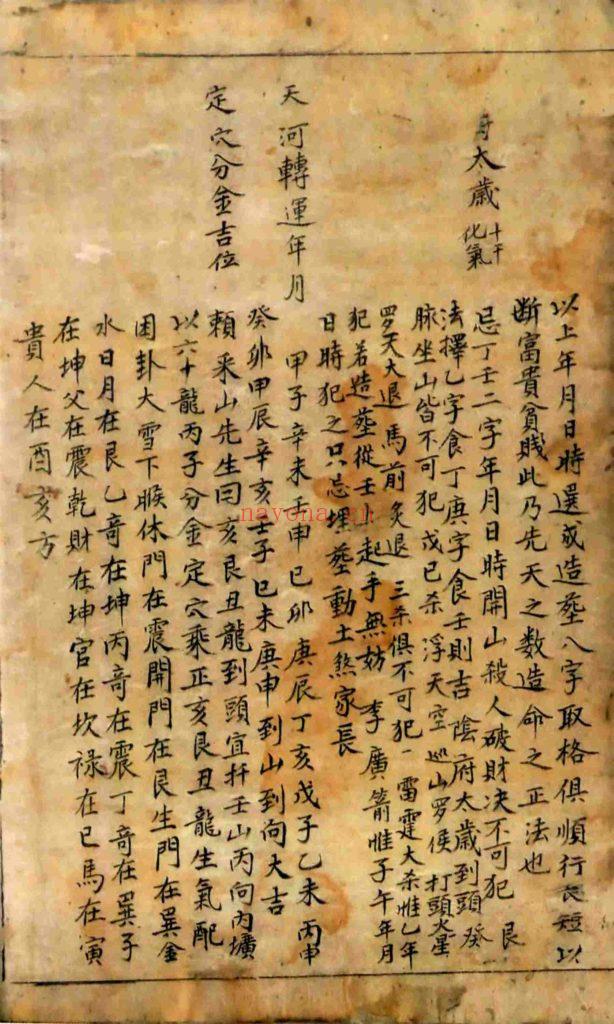 太歲 十干化氣
天河轉運年月
定穴分金吉位
以上年月日時選成造塟八字取格俱順行長短以
断富貴貧賤此乃先天之数造命之正法也
忌丁壬二字年月日時開山殺人破財决不可犯 艮
法擇乙字食丁庚字食壬則吉 陰府太歲到頭 癸
脉坐山皆不可犯戊已杀 浮天空 巡山罗侯 打頭火星
罗天大退 馬前炙退 三杀俱不可犯一 雷霆大杀惟乙年
犯若造塟從壬 起手無妨 李廣箭惟子午年月
日時犯之只忌埋塟動土煞家長
甲子辛未壬申已卯庚辰丁亥戊子乙未丙申
癸卯甲辰辛亥壬子已未庚申到山到向大吉
頼釆山先生曰亥艮丑龍到頭宜扦壬山丙向内壙
以六十龍丙子分金定穴乘正亥艮丑龍生氣配
困卦大雪下㬋休門在震開門在艮生門在巽金
水日月在艮乙竒在坤丙竒在震丁竒在巽子
在坤父在震乾財在坤官在坎禄在已馬在寅
貴人在酉亥方
nayona.cn